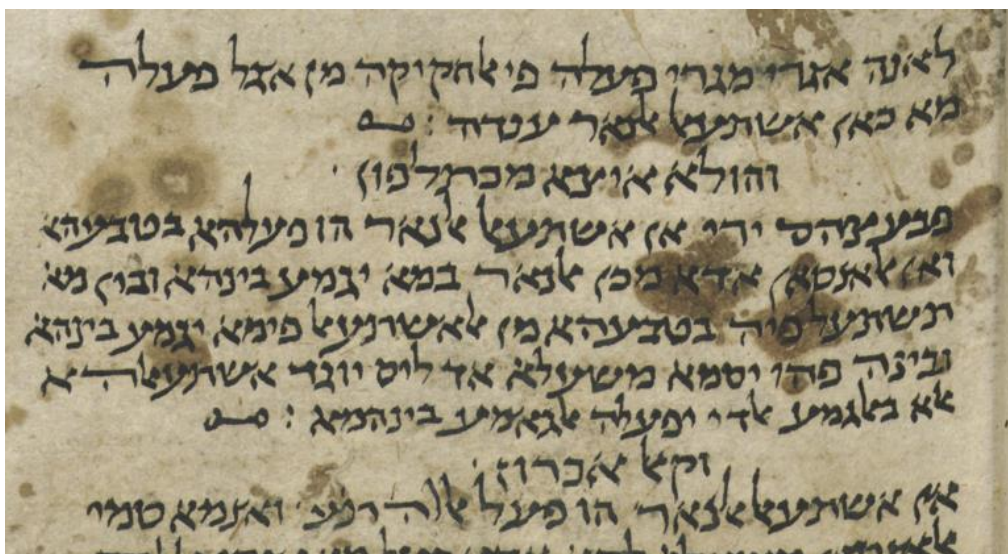 לאנה אגרי מגרי פעלה פי אלחקיקה מן אגל פעלה
מא כאן אשתעאל אלנאר ענדה :
והולא איצא מכתלפון .
פבעצהם ירי אן אשתעאל אלנאר הו פעלהא בטבעהא
ואן אלאנסאן אדא מכן אלנאר במא יגמע בינהא ובין מא
תשתעל פיה בטבעהא מן אלאשתעאל פימא יגמע בינהא
ובינה פהו יסמא משעלא אד ליס יוגד אשתעאלהא
אלא באלגמע אלדי יפעלה אלגאמע בינהמא :
וקאל אכרון .
אן אשתעאל אלנאר הו פעל אללה ואנמא סמי